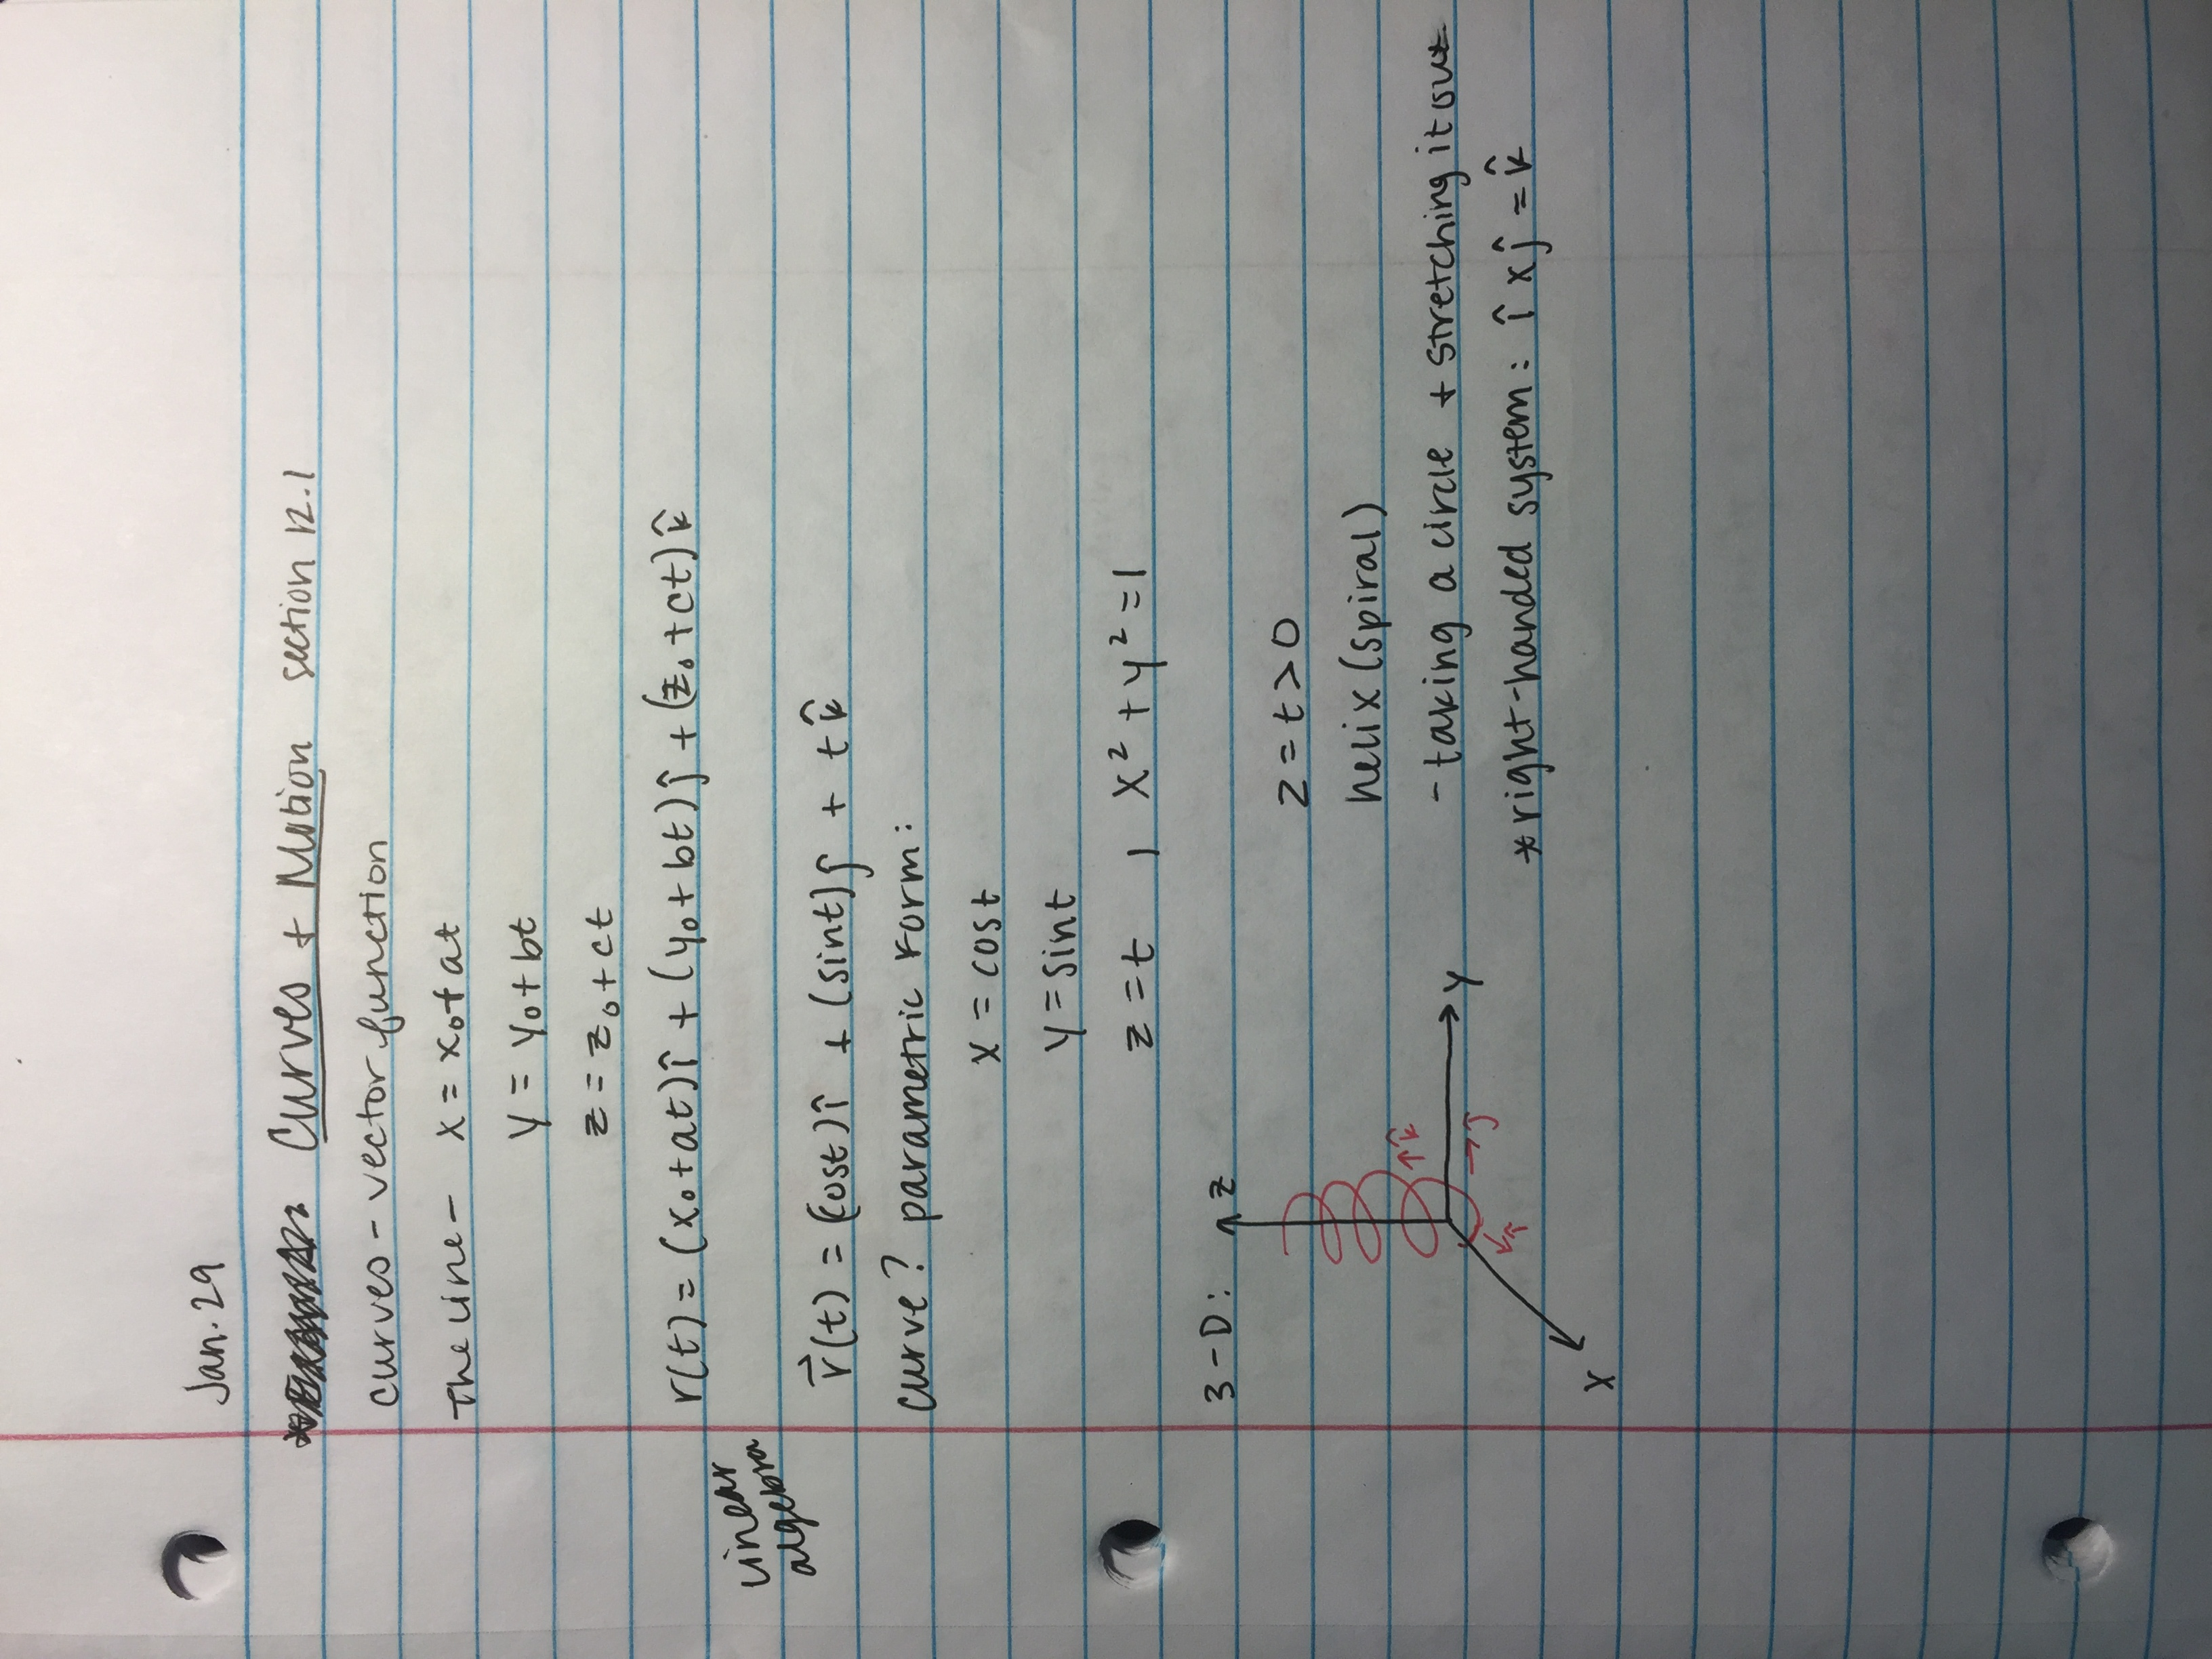 Jan. 29
Curves + Motion section 12.1
curves - vector function
The line - x = x₀ + at
y = y₀ + bt
z = z₀ + ct
r(t) = (x₀ + at)î + (y₀ + bt)ĵ + (z₀ + ct)k̂
linear
algebra
r⃗(t) = (cost)î + (sint)ĵ + tk̂
Curve? parametric form:
x = cost
y = sint
z = t | x² + y² = 1
3-D: z
z = t > 0
helix (spiral)
k̂
- taking a circle + stretching it out
y
ĵ
î
*right-handed system: î x ĵ = k̂
x